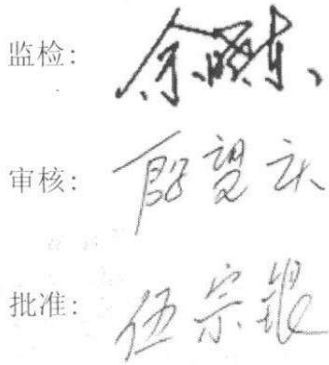 监检: 余晓东
审核: 殷望庆
批准: 伍宗银